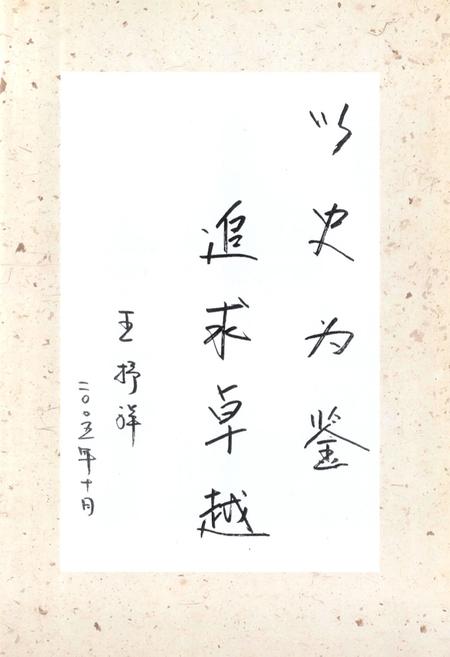 以史为鉴
追求卓越
王抒祥
二〇〇五年十月